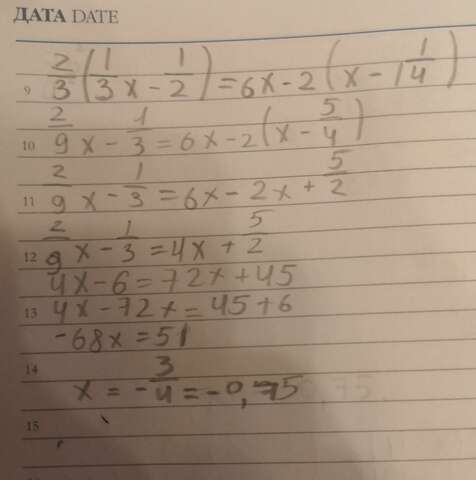 ДАТА DATE
9 2/3(1/3x - 1/2) = 6x - 2(x - 1 1/4)
10 2/9x - 1/3 = 6x - 2(x - 5/4)
11 2/9x - 1/3 = 6x - 2x + 5/2
12 2/9x - 1/3 = 4x + 5/2
4x - 6 = 72x + 45
13 4x - 72x = 45 + 6
-68x = 51
14
x = -3/4 = -0,75
15